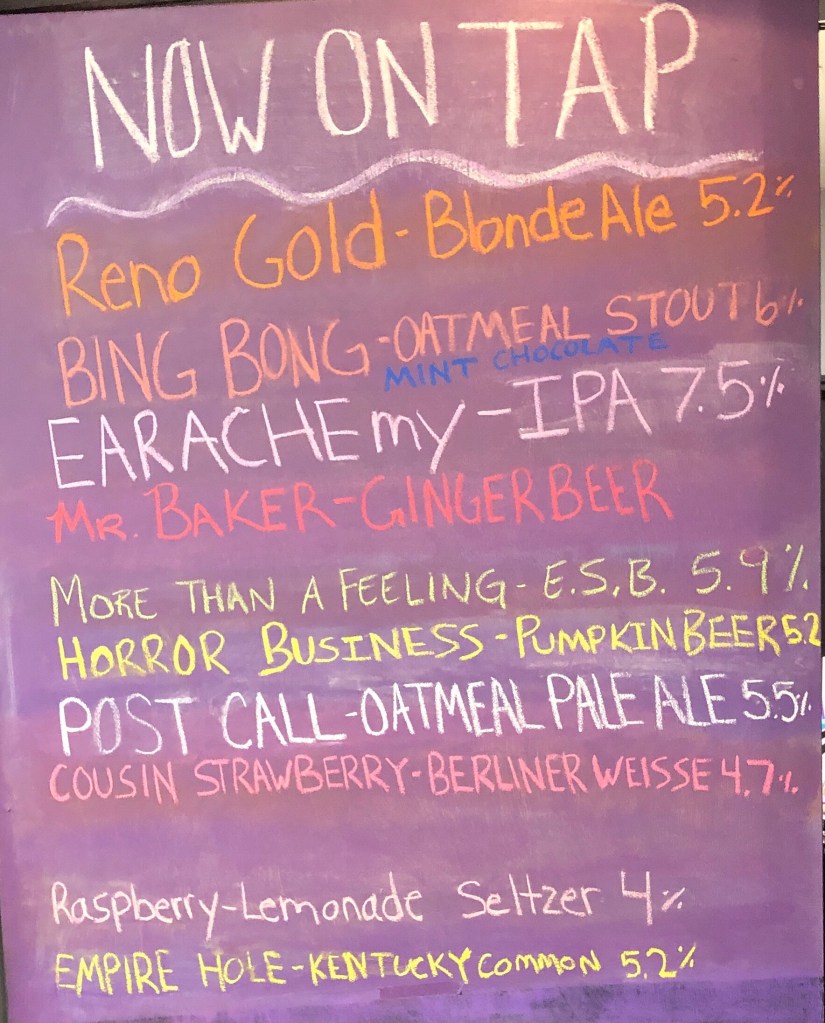 NOW ON TAP
Reno Gold - Blonde Ale 5.2%
BING BONG - OATMEAL STOUT 6%
MINT CHOCOLATE
EARACHE my - IPA 7.5%
MR. BAKER - GINGER BEER
MORE THAN A FEELING - E.S.B. 5.9%
HORROR BUSINESS - PUMPKIN BEER 5.2
POST CALL - OATMEAL PALE ALE 5.5%
COUSIN STRAWBERRY - BERLINER WEISSE 4.7%
Raspberry-Lemonade Seltzer 4%
EMPIRE HOLE - KENTUCKY COMMON 5.2%